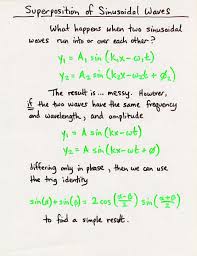 Superposition of Sinusoidal Waves
What happens when two sinusoidal
waves run into or over each other?
y₁ = A₁ sin (k₁x - ω₁t)
y₂ = A₂ sin (k₂x - ω₂t + ϕ₂)
The result is ... messy. However,
if the two waves have the same frequency
and wavelength, and amplitude
y₁ = A sin (kx - ωt)
y₂ = A sin (kx - ωt + ϕ)
differing only in phase, then we can use
the trig identity
sin(α) + sin(β) = 2 cos((α-β)/2) sin((α+β)/2)
to find a simple result.